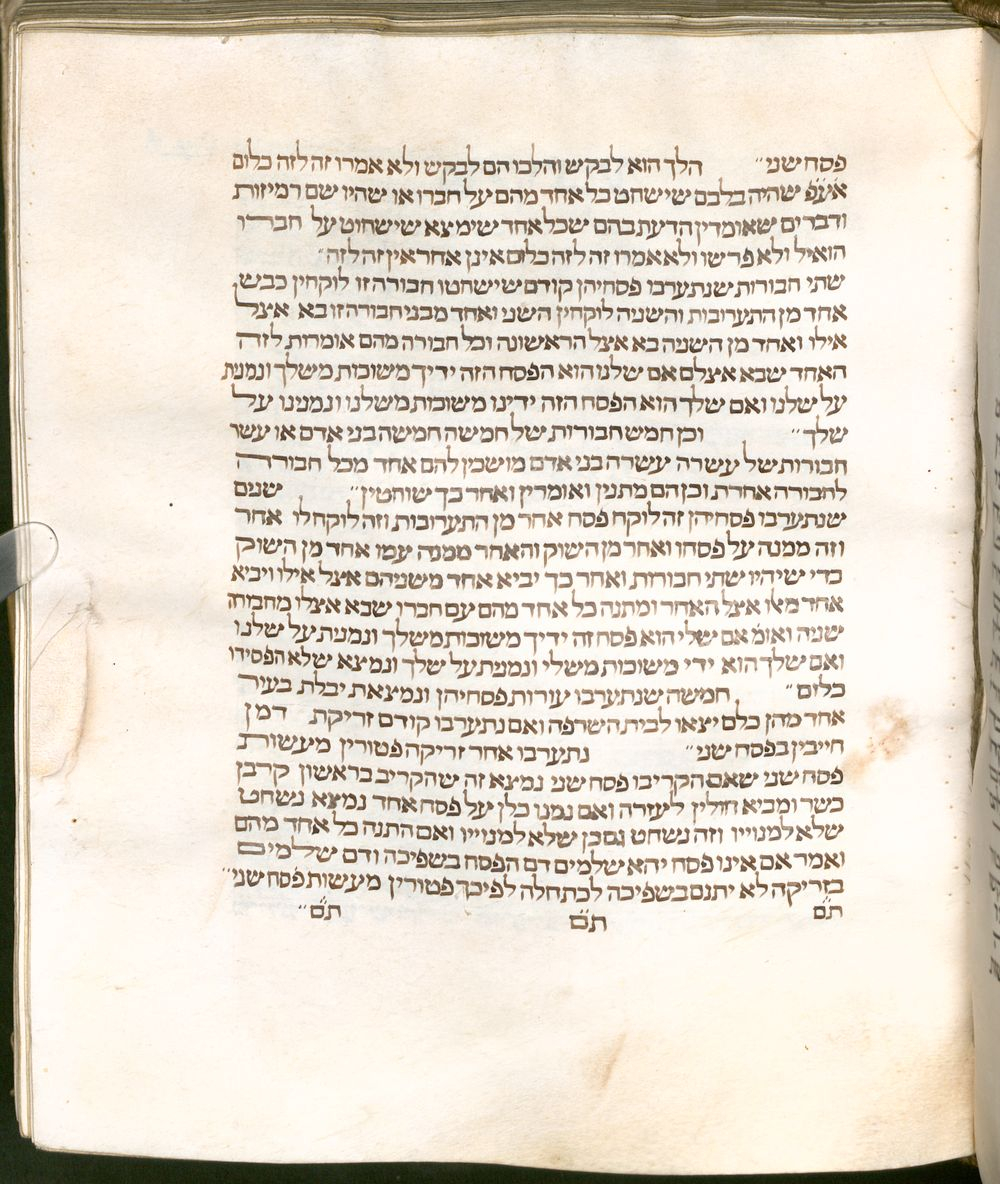 פסח שני״ הלך הוא לבקש והלכו הם לבקש ולא אמרו זה לזה כלום
אע״פ שהיה בלבם שישחט כל אחד מהם על חברו או שהיו שם רמיזות
ודברים שאומדין הדעת בהם שכל אחד שימצא שישחוט על חברו
הואיל ולא פרשו ולא אמרו זה לזה כלום אינן אחראין זה לזה״
שתי חבורות שנתערבו פסחיהן קודם שישחטו חבורה זו לוקחין כבש
אחד מן התערובות והשניה לוקחין השני ואחד מבני חבורה זו בא אצל
אילו ואחד מן השניה בא אצל הראשונה וכל חבורה מהם אומרות לזה
האחד שבא אצלם אם שלנו הוא הפסח הזה ידיך משוכות משלך ונמנית
על שלנו ואם שלך הוא הפסח הזה ידינו משוכות משלנו ונמנינו על
שלך״ וכן חמש חבורות של חמשה חמשה בני אדם או עשר
חבורות של עשרה עשרה בני אדם מושכין להם אחד מכל חבורה
לחבורה אחרת וכן הם מתנין ואומרין ואחר כך שוחטין״ שנים
שנתערבו פסחיהן זה לוקח פסח אחד מן התערובות וזה לוקח לו אחד
וזה ממנה על פסחו ואחד מן השוק והאחר ממנה עמו אחד מן השוק
כדי שיהיו שתי חבורות ואחר כך יביא אחד משניהם אצל אילו ויביא
אחד מאלו אצל האחר ומתנה כל אחד מהם עם חברו שבא אצלו מחבורה
שניה ואומ׳ אם שלי הוא פסח זה ידיך משוכות משלך ונמנית על שלנו
ואם שלך הוא ידי משוכות משלי ונמנית על שלך ונמצא שלא הפסידו
כלום״ חמשה שנתערבו עורות פסחיהן ונמצאת יבלת בעור
אחד מהן כלם יצאו לבית השרפה ואם נתערבו קודם זריקת דמן
חייבין בפסח שני״ נתערבו אחר זריקה פטורין מעשות
פסח שני שאם הקריבו פסח שני נמצא זה שהקריב בראשון קרבן
כשר ומביא חולין לעזרה ואם נמנו כלן על פסח אחד נמצא נשחט
שלא למנוייו וזה נשחט גם כן שלא למנוייו ואם התנה כל אחד מהם
ואמר אם אינו פסח יהא שלמים דם הפסח בשפיכה ודם שלמים
בזריקה לא יתנם בשפיכה לכתחלה לפיכך פטורין מעשות פסח שני״
ת״ם ת״ם ת״ם״